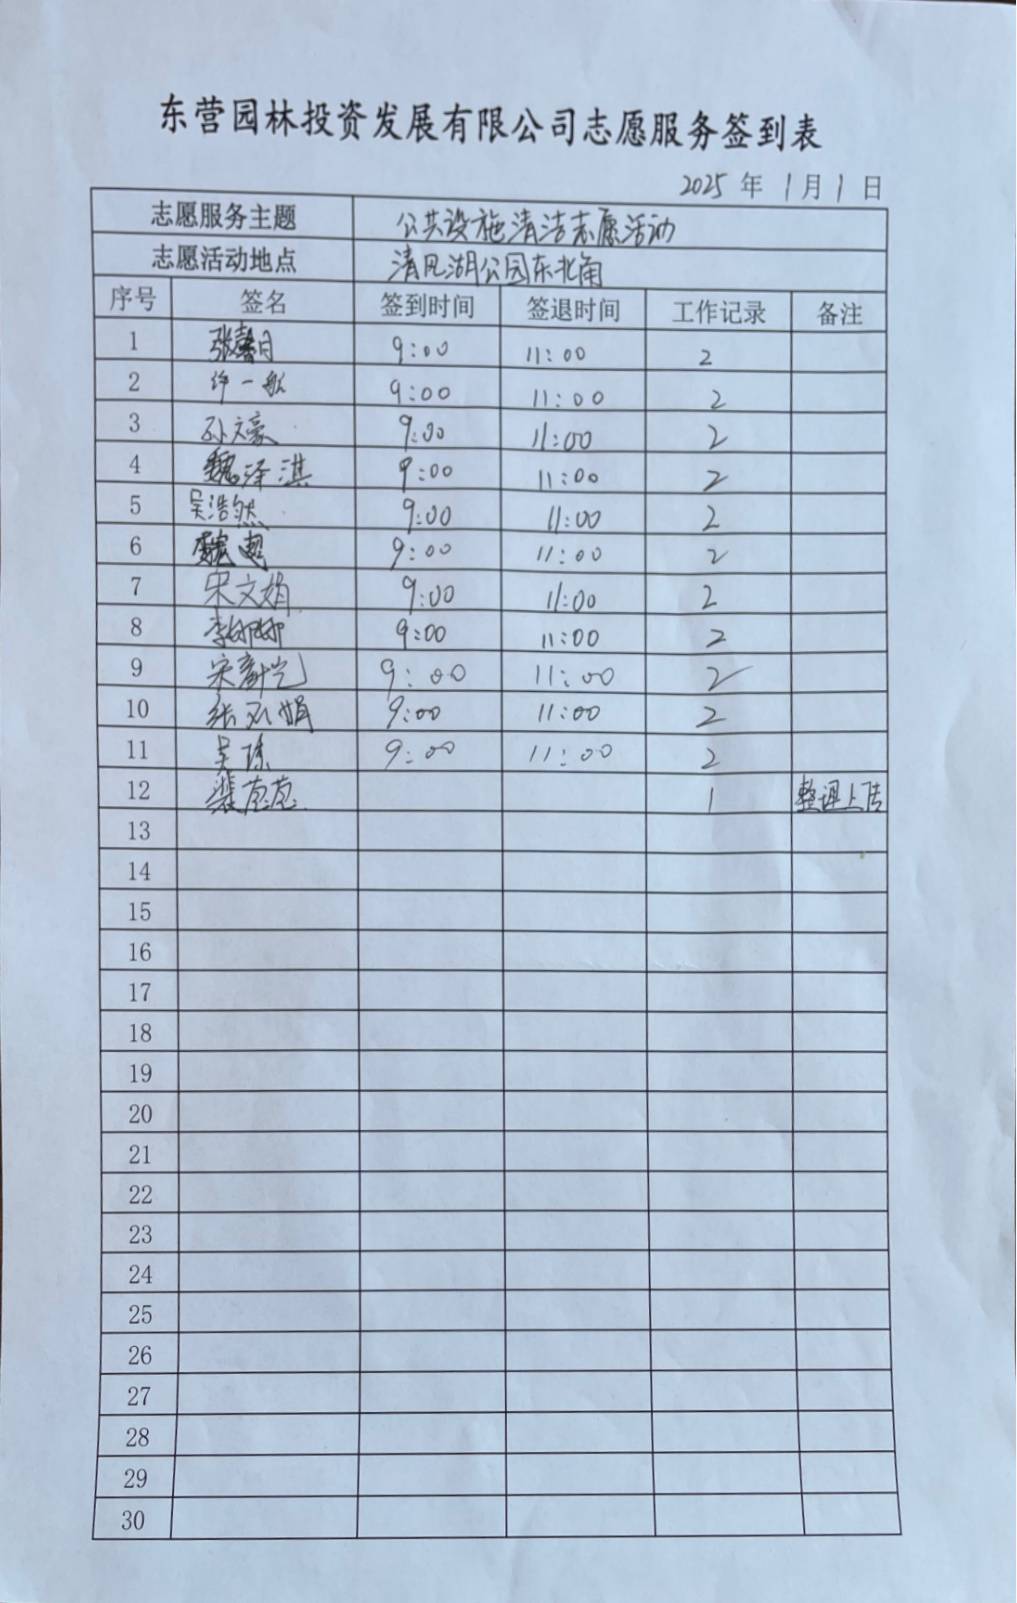 东营园林投资发展有限公司志愿服务签到表
2025 年 1 月 1 日
志愿服务主题 公共设施清洁志愿活动
志愿活动地点 清风湖公园东北角
序号 签名 签到时间 签退时间 工作记录 备注
1 张馨月 9:00 11:00 2
2 许一帆 9:00 11:00 2
3 孙文豪 9:00 11:00 2
4 魏泽淇 9:00 11:00 2
5 吴浩然 9:00 11:00 2
6 魏 9:00 11:00 2
7 宋文娟 9:00 11:00 2
8 李娜娜 9:00 11:00 2
9 宋 9:00 11:00 2
10 张 娟 9:00 11:00 2
11 吴 9:00 11:00 2
12 裴苞苞 1 整理上传
13
14
15
16
17
18
19
20
21
22
23
24
25
26
27
28
29
30